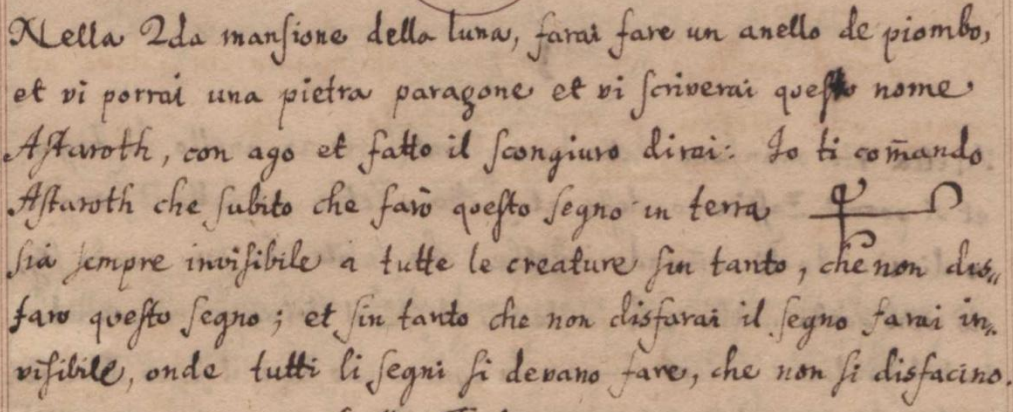 Nella 2da mansione della luna, farai fare un anello de piombo,
et vi porrai una pietra paragone et vi scriverai questo nome
Astaroth, con ago et fatto il scongiuro dirai: Io ti com̃ando
Astaroth che subito che farò questo segno in terra
sia sempre invisibile a tutte le creature sin tanto, che non dis„
farò questo segno; et sin tanto che non disfarai il segno farai in„
visibile, onde tutti li segni si devano fare, che non si disfacino.